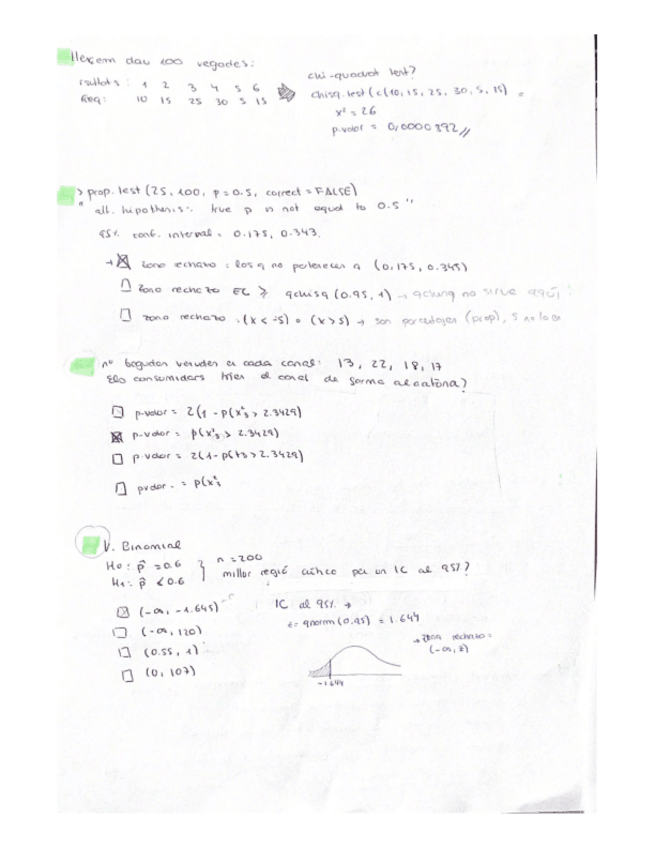 llencem dau 100 vegades:
rsultats: 1 2 3 4 5 6
freq: 10 15 25 30 5 15
chi-quadrat test?
chisq.test(c(10, 15, 25, 30, 5, 15) =
x² = 26
p.valor = 0,0000892
> prop.test (25, 100, p = 0.5, correct = FALSE)
" alt. hipothesis: true p is not equal to 0.5 "
95% conf. interval = 0.175, 0.343.
→ zona rechazo: los q no pertenecen a (0.175, 0.345)
zona rechazo EC ≥ qchisq (0.95, 1) → no sirve aquí!
zona rechazo: (x < -5) o (x > 5) → son porcentajes (prop), 5 no lo es
nº begudes venudes a cada canal: 13, 22, 18, 17
Els consumidors trien el canal de forma aleatòria?
p-valor = 2(1 - p(x²₃ > 2.3429)
p-valor = p(x²₃ > 2.3429)
p-valor = 2(1 - p(t₃ > 2.3429)
pvalor = p(x²₃
V. Binomial
H0: p̂ = 0.6
H1: p̂ < 0.6
} n = 200
millor regió crítica per un IC al 95%?
(-∞, -1.645)
(-∞, 120)
(0.55, 1)
(0, 107)
IC al 95% →
qnorm (0.95) = 1.644
→ zona rechazo =
(-∞, z)
-1.644